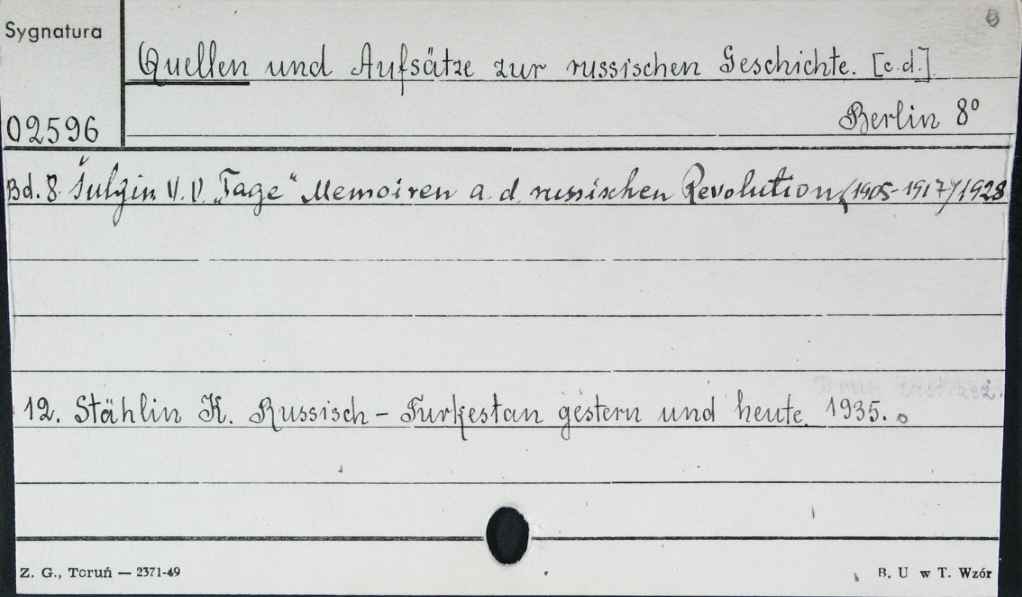 Sygnatura
Quellen und Aufsätze zur russischen Geschichte. [c.d.]
02596
Berlin 8°
Bd. 8 Šulgin V. V. „Tage“ Memoiren a. d. russischen Revolution (1905-1917) 1928
12. Stählin K. Russisch - Turkestan gestern und heute. 1935.
Z. G., Toruń — 2371-49
B. U w T. Wzór